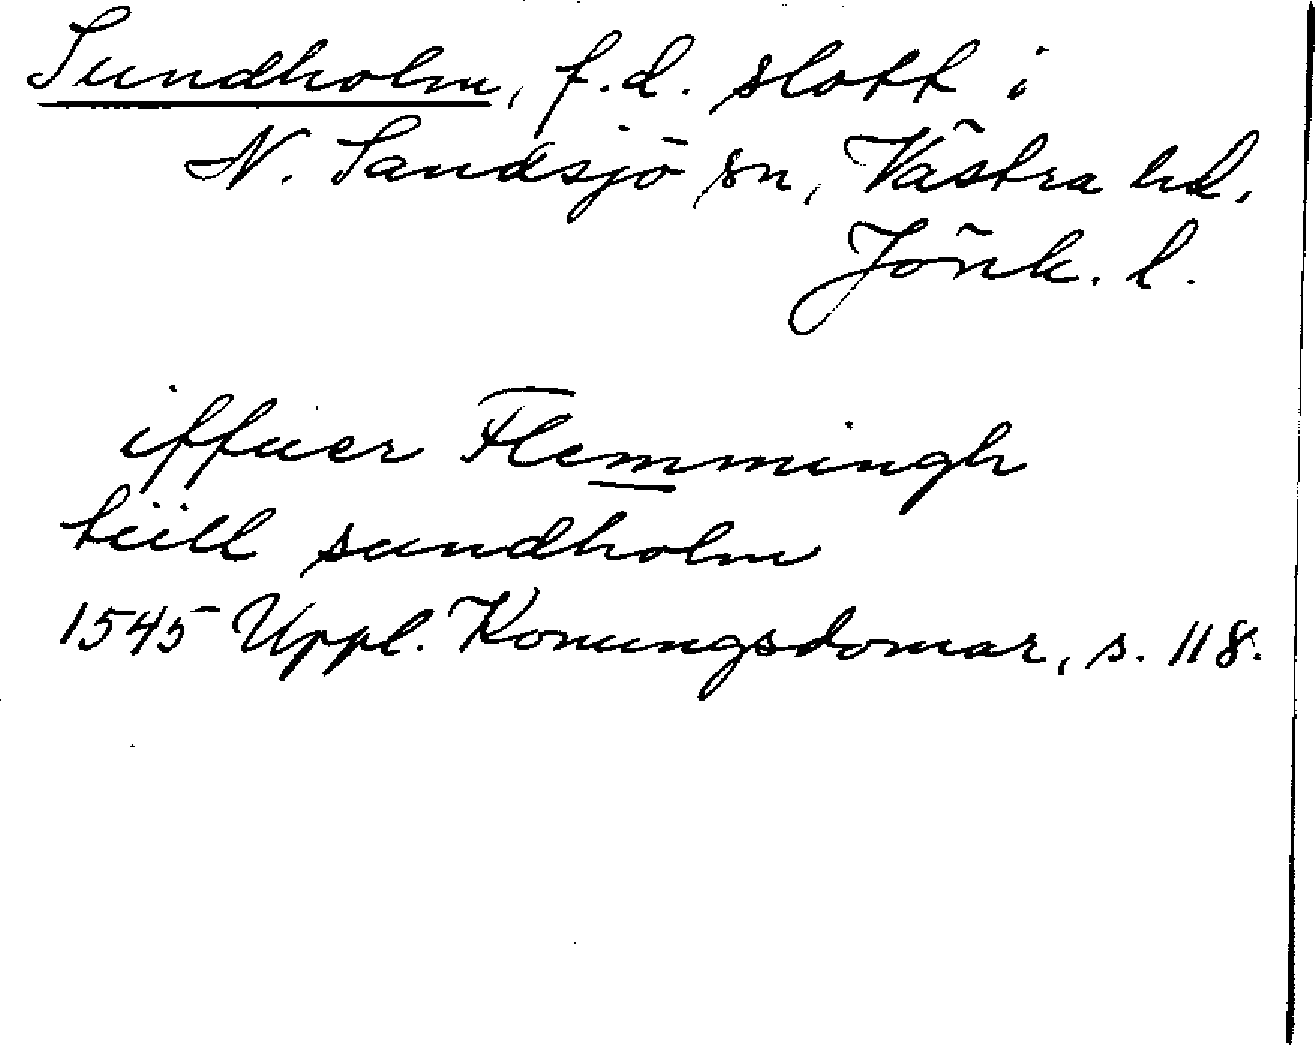 Sundholm, f.d. slott i
N. Sandsjö sn, Västra hd,
Jönk. l.
iffuer Flemmingh
tiill sundholm
1545 Uppl. Konungsdomar, s. 118.